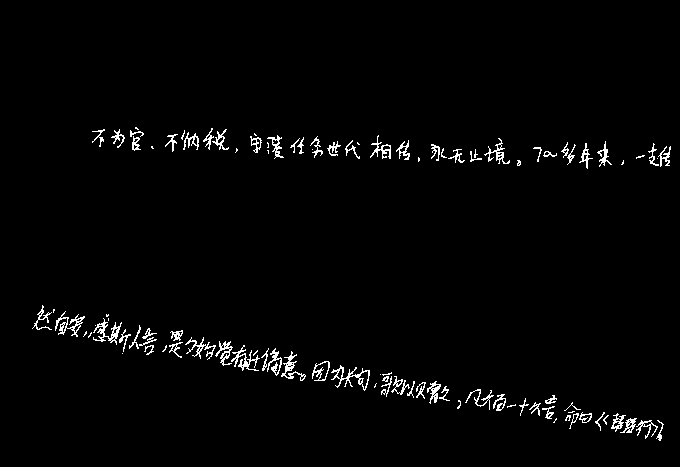 不为官、不纳税，守陵任务世代相传，永无止境。700多年来，一支传
然自安，感斯人言，是夕始觉有迁谪意。因为长句，歌以赠之，凡六百一十六言，命曰《琵琶行》。